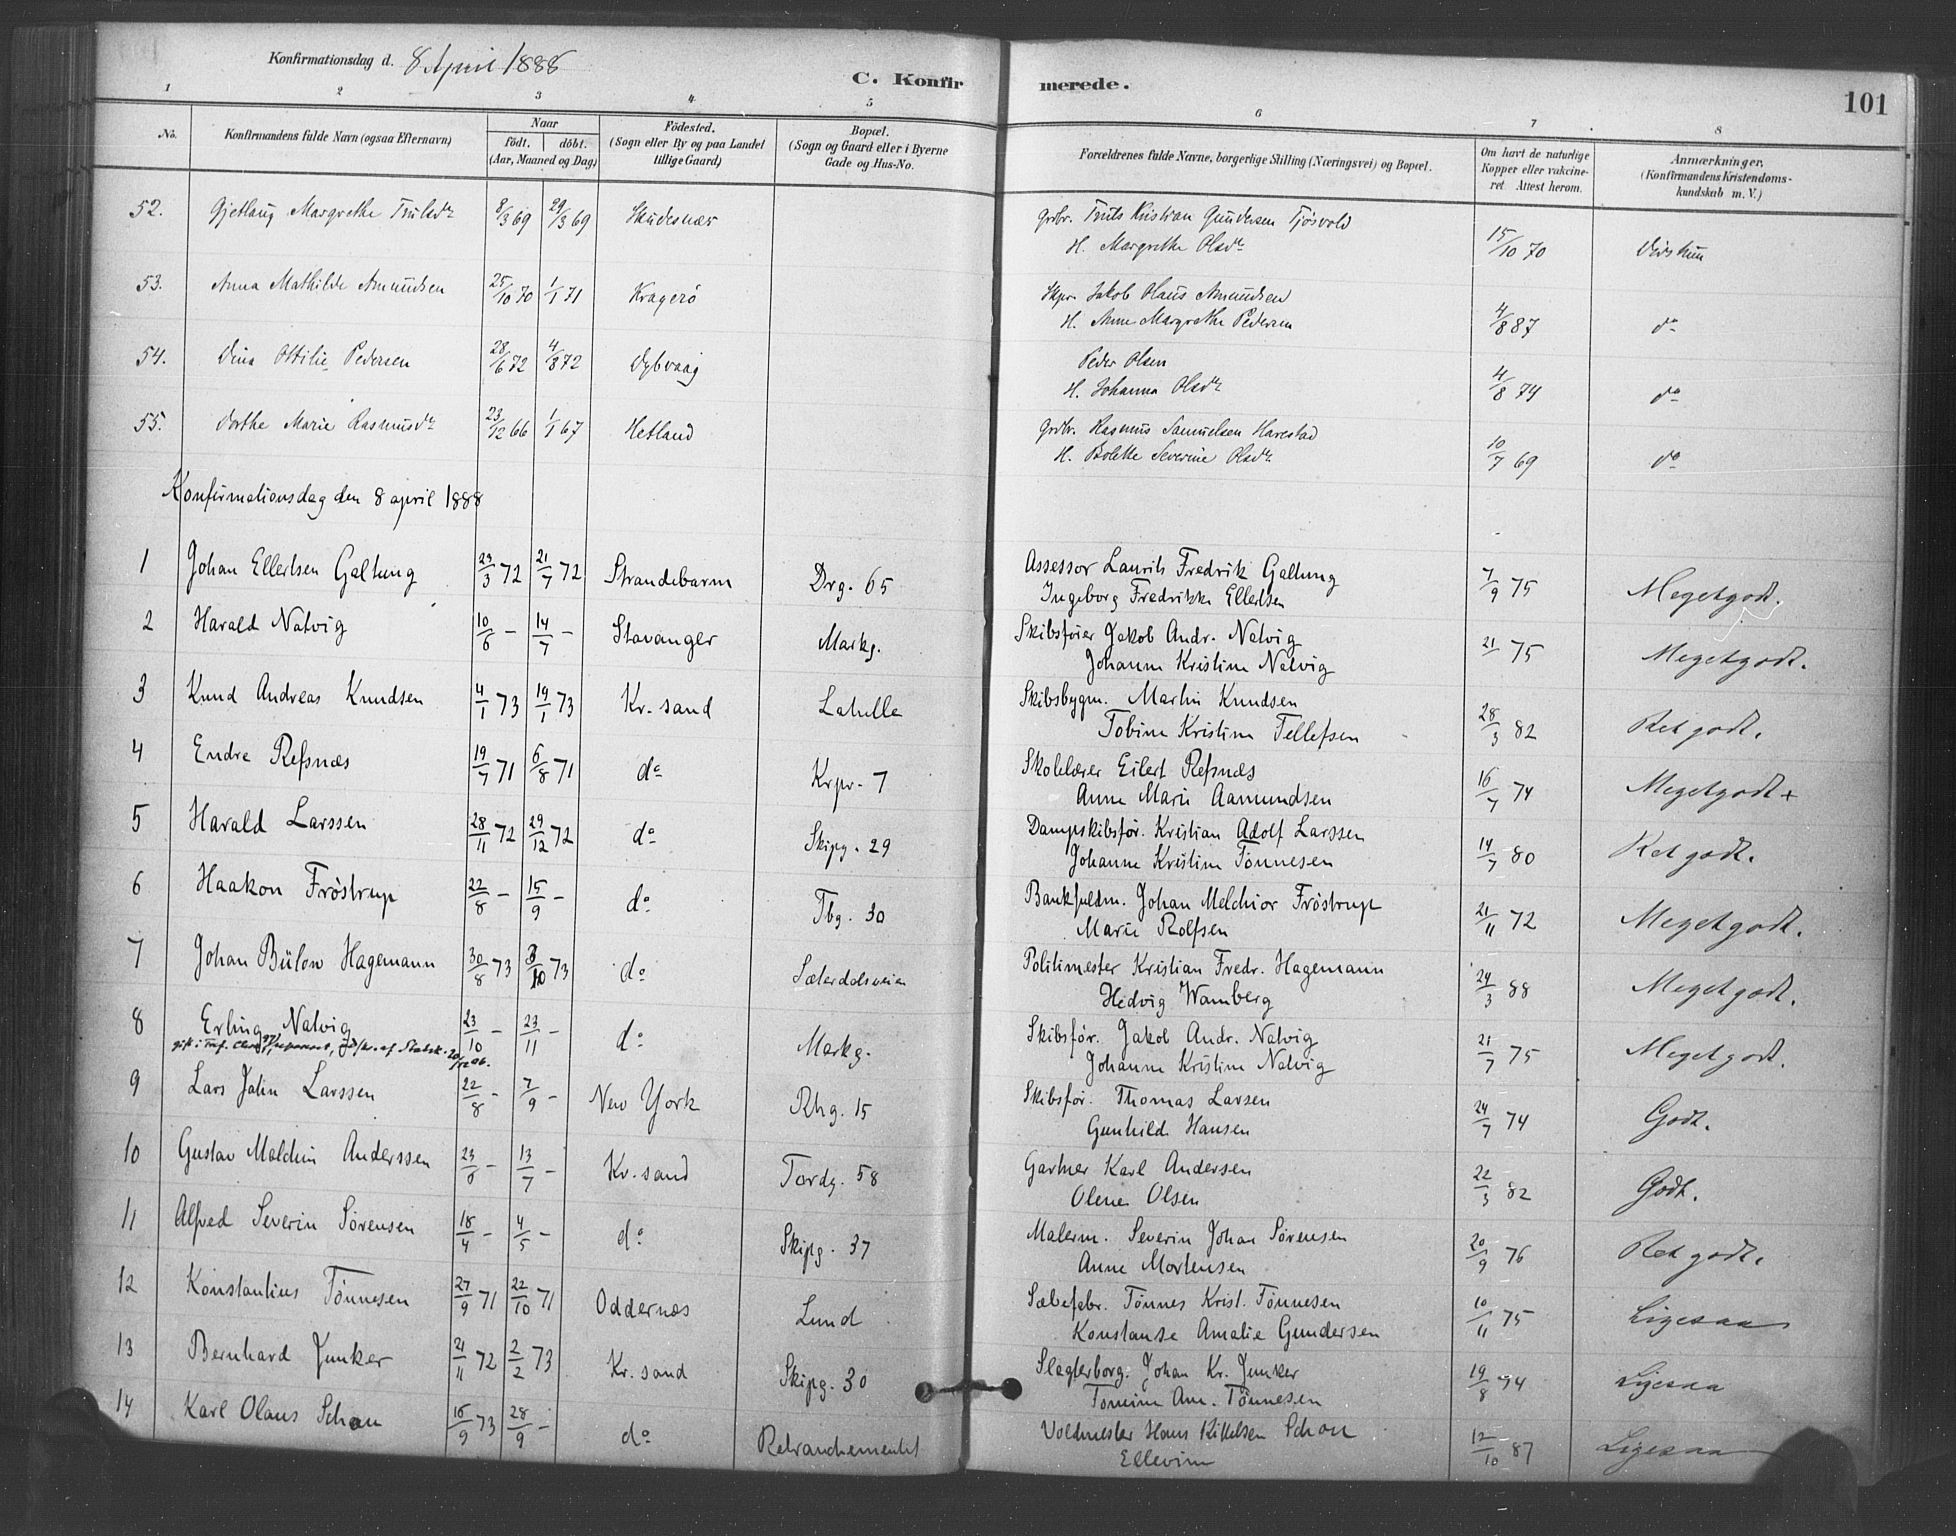 Konfirmationsdag d. 8 April 1888
C. Konfirmerede.
101
1 2 3 4 5 6 7 8
No. Konfirmandens fulde Navn (ogsaa Efternavn) Naar födt. döbt. (Aar, Maaned og Dag) Födested. (Sogn eller By og paa Landet tillige Gaard) Bopæl. (Sogn og Gaard eller i Byerne Gade og Hus-No. Forældrenes fulde Navne, borgerlige Stilling (Næringsvei) og Bopæl. Om havt de naturlige Kopper eller vakcineret Attest herom. Anmærkninger, (Konfirmandens Kristendomskundskab m. V.)
52. Gjetlaug Margrethe Trulsdr 8/3 69 29/3 69 Skudesnæs Grdbr. Truls Kristian Gundersen Tjösvold
H. Margrethe Olsdr 15/10 70
53. Anna Mathilde Amundsen 25/10 70 1/1 71 Kragerö Skpr. Jakob Olaus Amundsen
H. Anne Margrethe Pedersen 4/8 87 do
54. Dina Ottilie Pedersen 28/6 72 4/8 72 Dybvaag Peder Olsen
H. Johanna Olsdr 4/8 74 do
55. Dorthe Marie Rasmusdr 23/12 66 1/1 67 Hetland Grdbr. Rasmus Samuelsen Harestad
H. Bolette Severine Olsdr. 10/7 69 do
Konfirmationsdag den 8 april 1888
1 Johan Ellertsen Galtung 23/3 72 21/7 72 Strandebarm Drg. 65 Assessor Laurits Fredrik Galtung
Ingeborg Fredrikke Ellertsen 7/9 75 Megetgodt.
2 Harald Natvig 10/6 – 14/7 – Stavanger Markg. Skibsfører Jakob Andr. Natvig
Johanne Kristine Natvig 21/ 75 Megetgodt.
3 Knud Andreas Knudsen 4/1 73 19/1 73 Kr.sand Lahelle Skibsbygm. Martin Knudsen
Tobine Kristine Tellefsen 28/3 82 Ret godt.
4 Endre Refsnæs 19/7 71 6/8 71 do Krpr. 7 Skolelærer Eilert Refsnæs
Anne Marie Aamundsen 16/7 74 Megetgodt +
5 Harald Larssen 28/11 72 29/12 72 do Skipg. 29 Dampskibsför. Kristian Adolf Larssen
Johanne Kristine Tönnesen 14/7 80 Ret godt.
6 Haakon Fröstrup 22/8 – 15/9 – do Tbg. 30 Bankfuldm. Johan Melchior Fröstrup
Marie Rolfsen 21/11 72 Megetgodt.
7 Johan Bülow Hagemann 30/8 73 /10 73 do Sæterdalsveien Politimester Kristian Fredr. Hagemann
Hedvig Wamberg 24/3 88 Megetgodt.
8 Erling Natvig 23/10 – 23/11 – do Markg. Skibsför. Jakob Andr. Natvig
Johanne Kristine Natvig 21/7 75 Megetgodt.
9 Lars Jahn Larssen 22/8 – 7/9 – New York Rhg. 15 Skibsför. Thomas Larsen
Gunhild Hansen 24/7 74 Godt.
10 Gustav Melchior Anderssen 23/6 – 13/7 – Kr.sand Tordg. 58 Gartner Karl Andersen
Olene Olsen 22/3 82 Godt.
11 Alfred Severin Sörensen 18/4 – 4/5 – do Skipg. 37 Malerm. Severin Johan Sörensen
Anne Mortensen 20/9 76 Ret godt.
12 Konstantius Tönnesen 27/9 71 22/10 71 Oddernæs Lund Sæbefabr. Tönnes Krist. Tönnesen
Konstanse Amalie Gundersen 10/11 75 Ligesaa
13 Bernhard Junker 21/11 72 2/2 73 Kr.sand Skipg. 30 Slagterborg. Johan Kr. Junker
Tomine Am. Tönnesen 19/8 74 Ligesaa
14 Karl Olaus Schou 16/9 73 28/9 – do Retranchementet Voldmester Hans Kittelsen Schou
Ellevine 12/10 87 Ligesaa